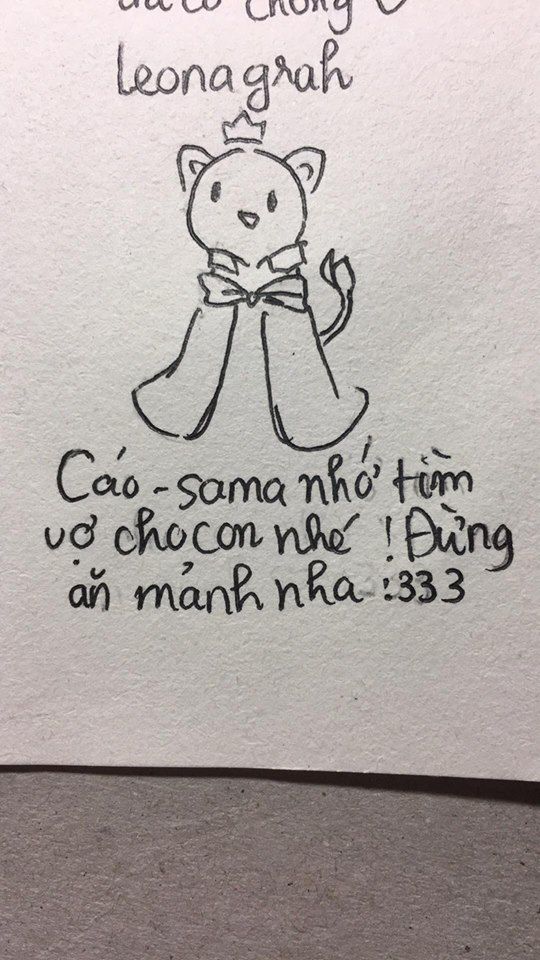 đã có chồng
leonagrah
Cáo-sama nhớ tìm
vợ cho con nhé ! Đừng
ăn mảnh nha :333